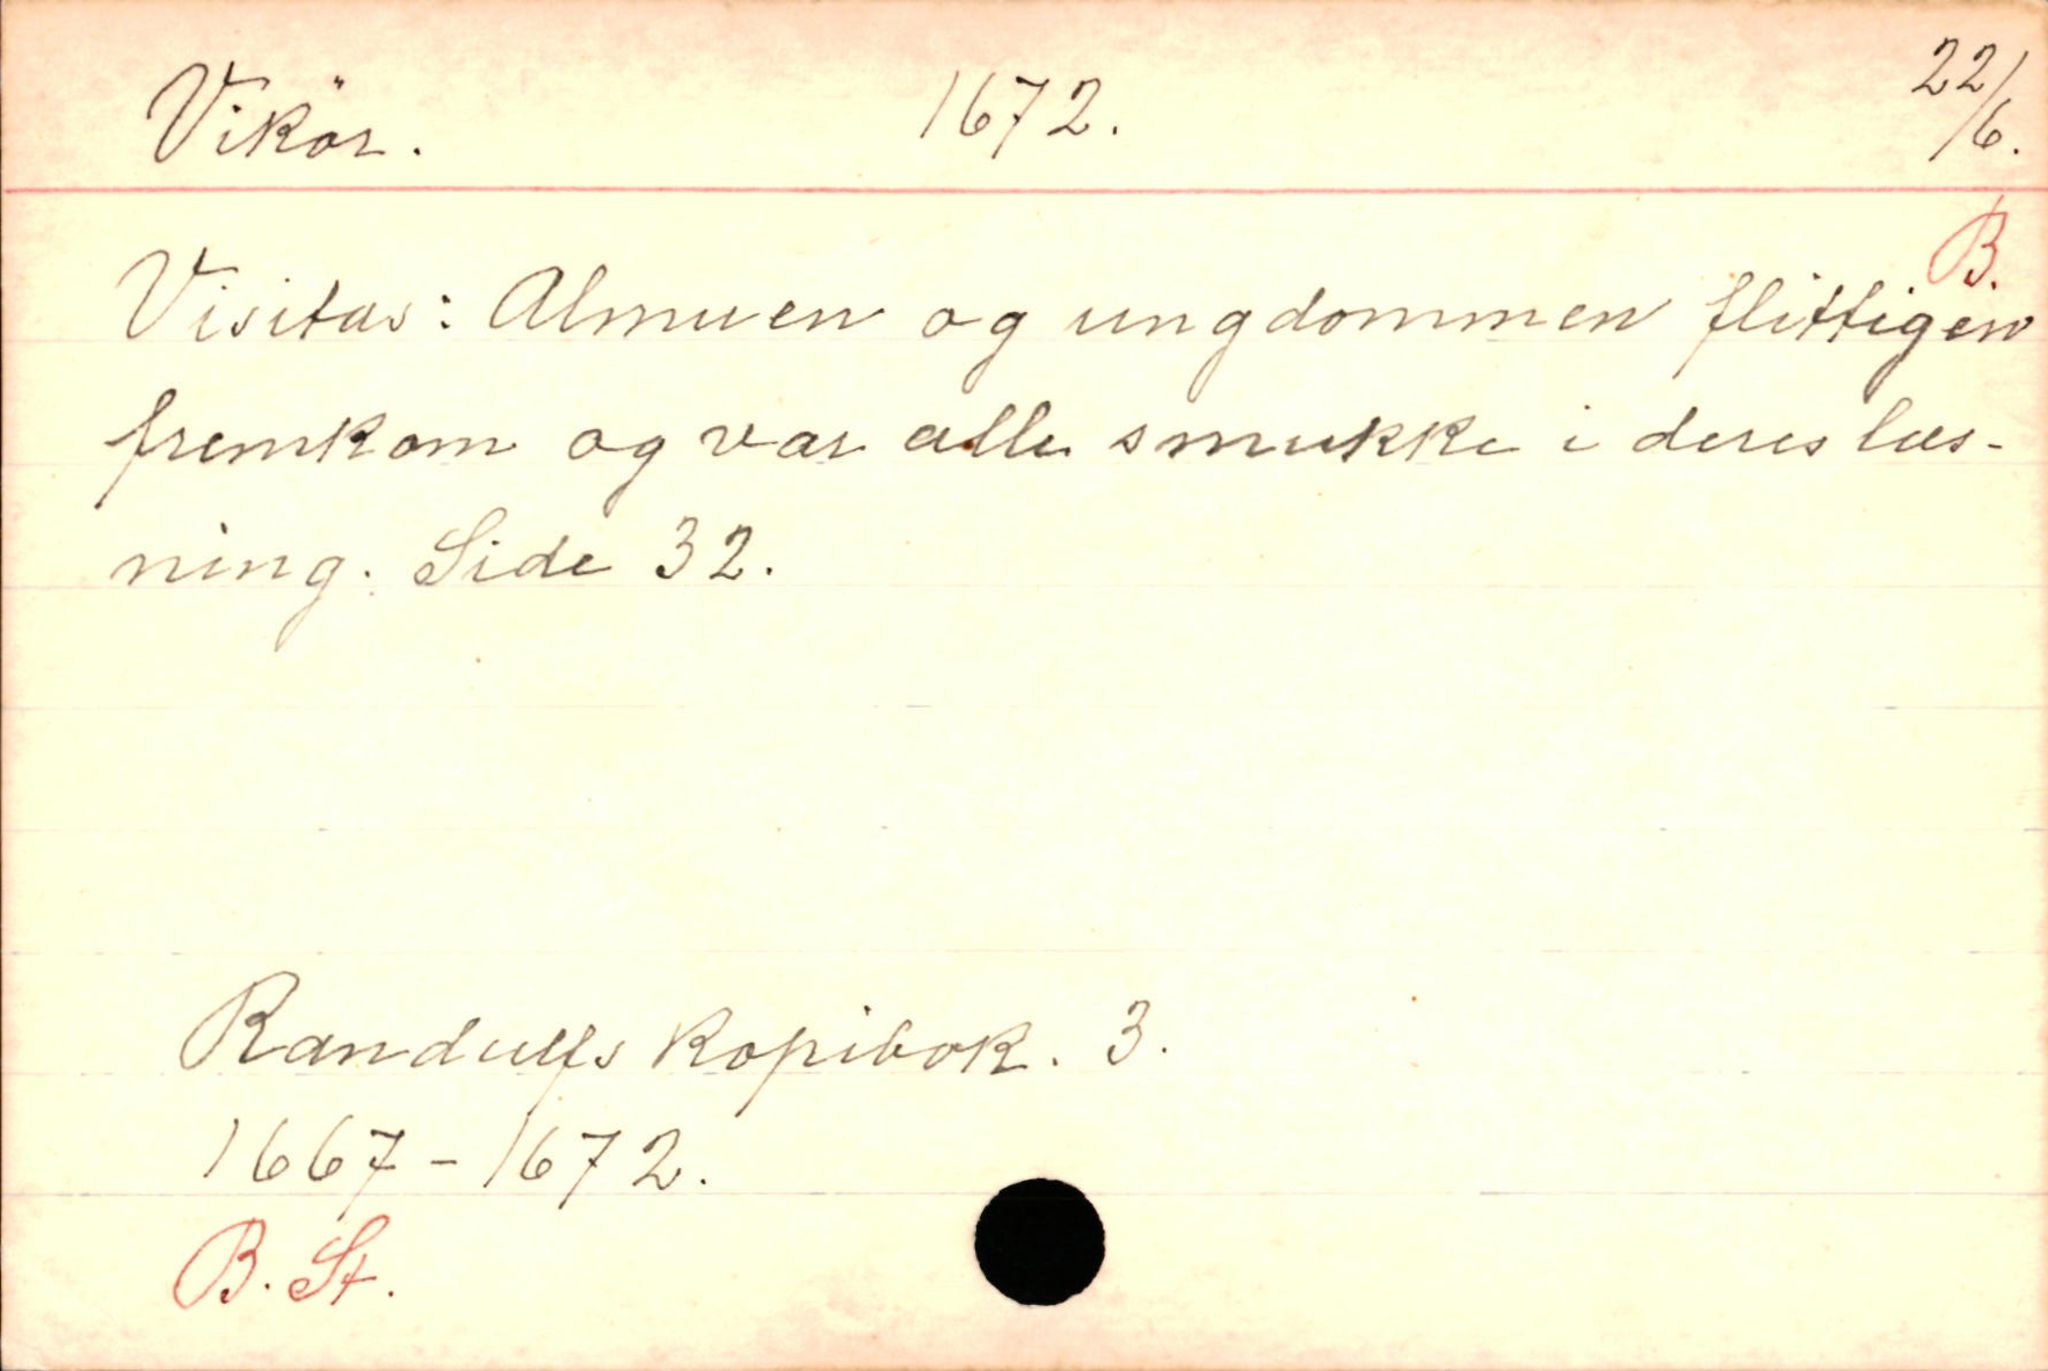 Vikör. 1672. 22/6.
B.
Visitas: Almuen og ungdommen flittigen
fremkom og var alle smukke i deres læs-
ning. Side 32.
Randulfs Kopibok. 3.
1667-1672.
B. St.